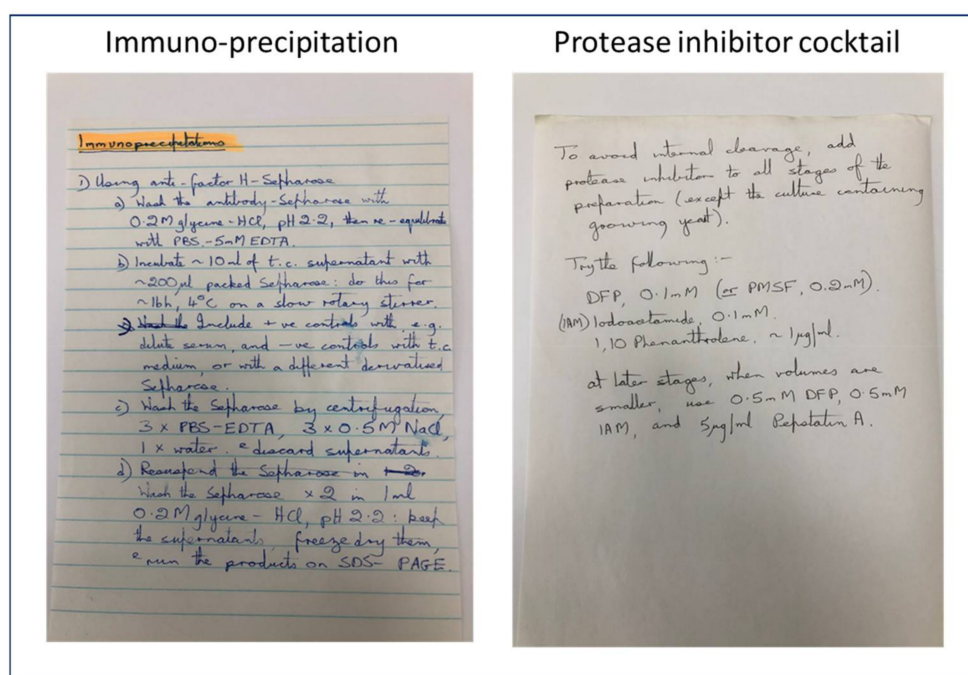 Immuno-precipitation
Protease inhibitor cocktail
Immunoprecipitations
1) Using anti-factor H-Sepharose
a) Wash the antibody-Sepharose with
0.2M glycine-HCl, pH 2.2, then re-equilibrate
with PBS-5mM EDTA.
b) Incubate ~10ml of t.c. supernatant with
~200µl packed Sepharose: do this for
~16h, 4°C on a slow rotary stirrer.
Include +ve controls with, e.g.
dilute serum, and -ve controls with t.c.
medium, or with a different derivatised
Sepharose.
c) Wash the Sepharose by centrifugation,
3 x PBS-EDTA, 3 x 0.5M NaCl,
1 x water. & discard supernatants.
d) Resuspend the Sepharose in
Wash the Sepharose x 2 in 1ml
0.2M glycine-HCl, pH 2.2: keep
the supernatants, freeze dry them,
& run the products on SDS-PAGE.
To avoid internal cleavage, add
protease inhibitor to all stages of the
preparation (except the culture containing
growing yeast).
Try the following:-
DFP, 0.1mM (or PMSF, 0.2mM).
(IAM) Iodoacetamide, 0.1mM.
1,10 Phenanthrolene, ~1µg/ml.
at later stages, when volumes are
smaller, use 0.5mM DFP, 0.5mM
IAM, and 5µg/ml Pepstatin A.